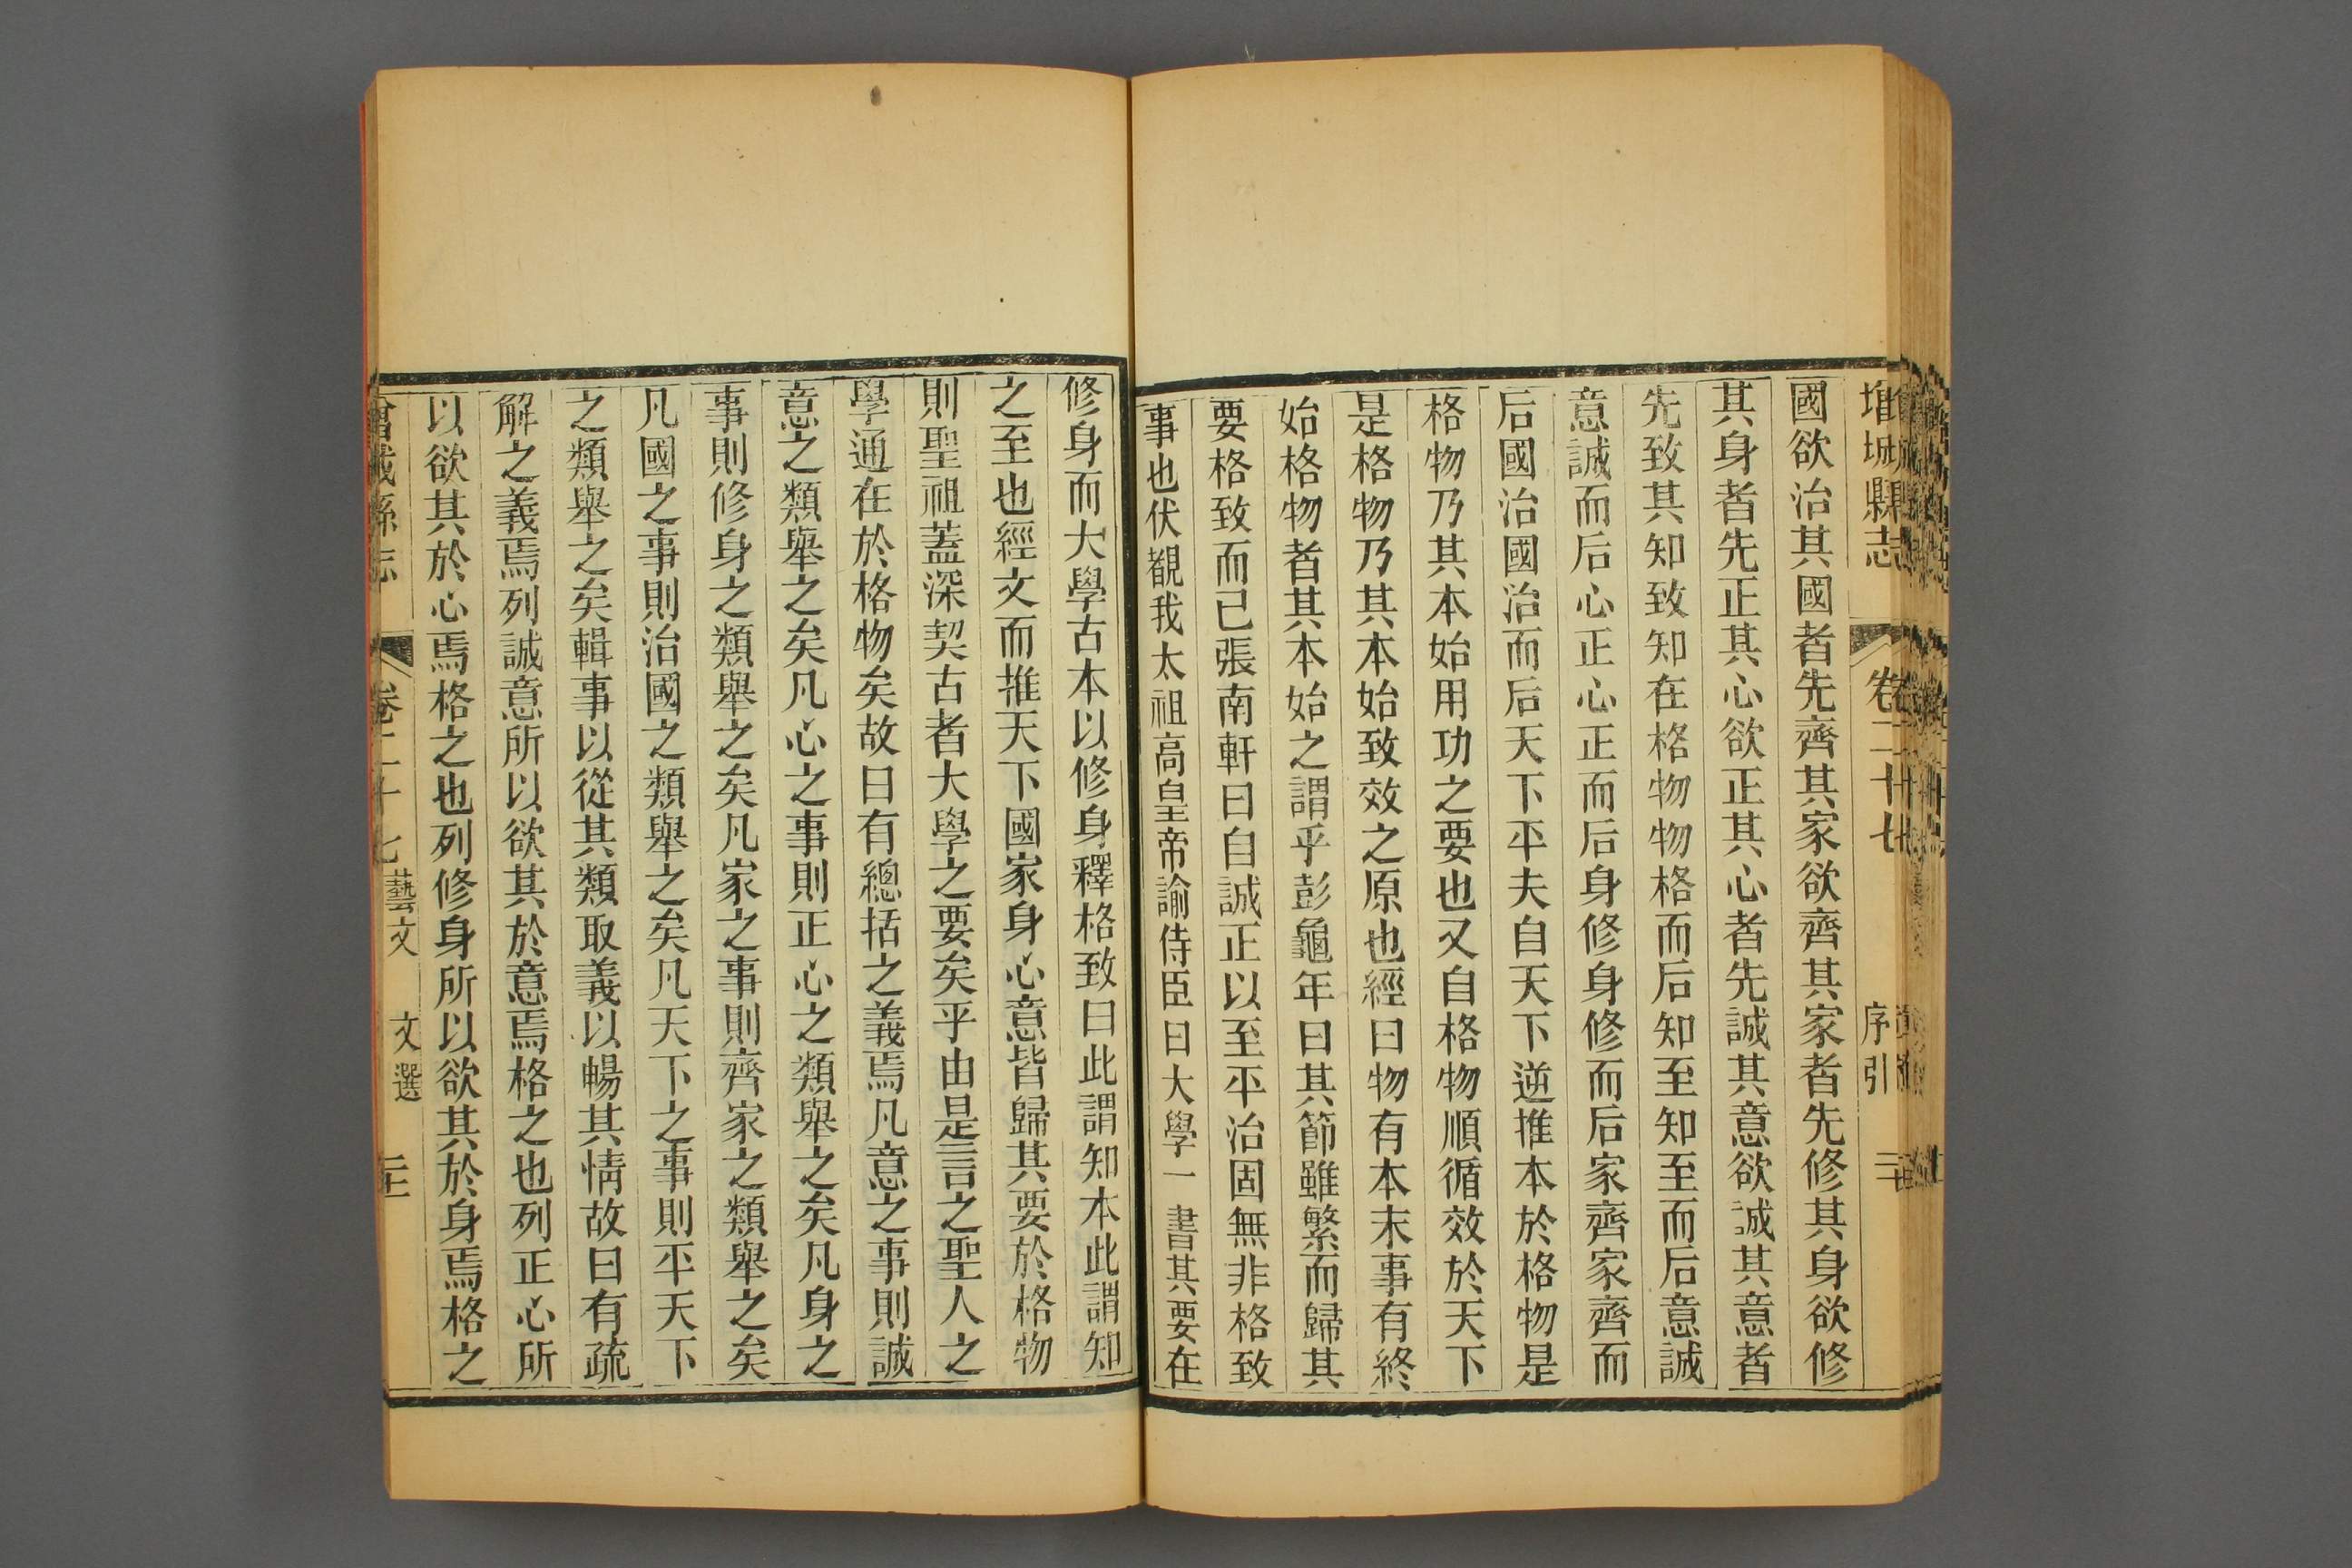 增城縣志
卷二十七
序引
國欲治其國者先齊其家欲齊其家者先修其身欲修
其身者先正其心欲正其心者先誠其意欲誠其意者
先致其知致知在格物物格而后知至知至而后意誠
意誠而后心正心正而后身修身修而后家齊家齊而
后國治國治而后天下平夫自天下逆推本於格物是
格物乃其本始用功之要也又自格物順循效於天下
是格物乃其本始致效之原也經曰物有本末事有終
始格物者其本始之謂乎彭龜年曰其節雖繁而歸其
要格致而已張南軒曰自誠正以至平治固無非格致
事也伏覩我太祖高皇帝諭侍臣曰大學一書其要在
修身而大學古本以修身釋格致曰此謂知本此謂知
之至也經文而推天下國家身心意皆歸其要於格物
則聖祖蓋深契古者大學之要矣乎由是言之聖人之
學通在於格物矣故曰有總括之義焉凡意之事則誠
意之類舉之矣凡心之事則正心之類舉之矣凡身之
事則修身之類舉之矣凡家之事則齊家之類舉之矣
凡國之事則治國之類舉之矣凡天下之事則平天下
之類舉之矣輯事以從其類取義以暢其情故曰有疏
解之義焉列誠意所以欲其於意焉格之也列正心所
以欲其於心焉格之也列修身所以欲其於身焉格之
縣志
卷二十七
藝文
文選